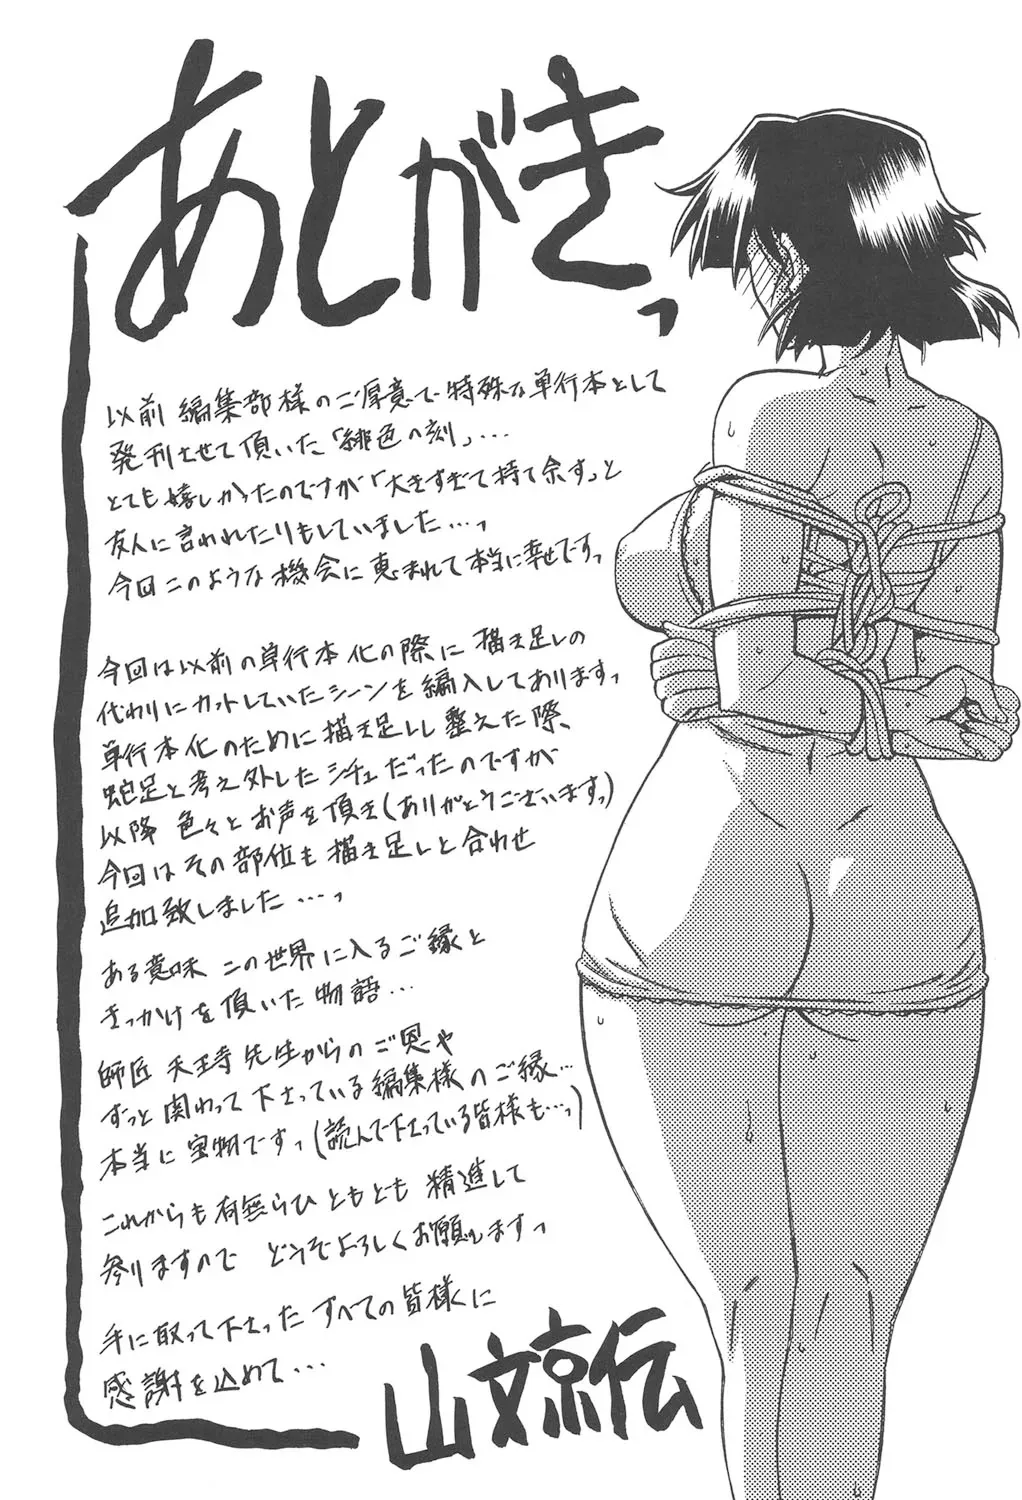 あとがきっ
以前 編集部様のご厚意で 特殊な単行本として
発刊させて頂いた「緋色の刻」…
とても嬉しかったのですが「大きすぎて持て余すっ」と
友人に言われたりもしていました…っ
今回このような機会に恵まれて本当に幸せですっ
今回は以前の単行本化の際に描き足しの
代わりにカットしていたシーンを編入してありますっ
単行本化のために描き足しし整えた際、
蛇足と考え外したシチュだったのですが
以降 色々とお声を頂き(ありがとうございますっ)
今回はその部位も描き足しと合わせ
追加致しました…っ
ある意味 この世界に入るご縁と
きっかけを頂いた物語…
師匠 天王寺先生からのご恩や
ずっと関わって下さっている編集様のご縁…
本当に宝物ですっ(読んで下さっている皆様も…っ)
これからも有無らひともとも 精進して
参りますので どうぞよろしくお願いしますっ
手に取って下さった すべての皆様に
感謝を込めて…
山文京伝